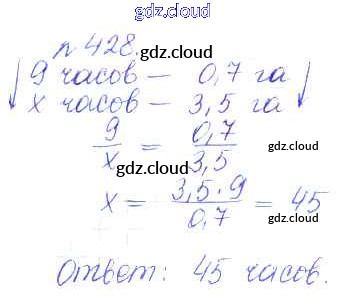 gdz.cloud
n 428.
gdz.cloud
9 часов — 0,7 га
х часов — 3,5 га
9/х = 0,7/3,5
gdz.cloud
gdz.cloud
х = 3,5·9/0,7 = 45
gdz.cloud
gdz.cloud
Ответ: 45 часов.